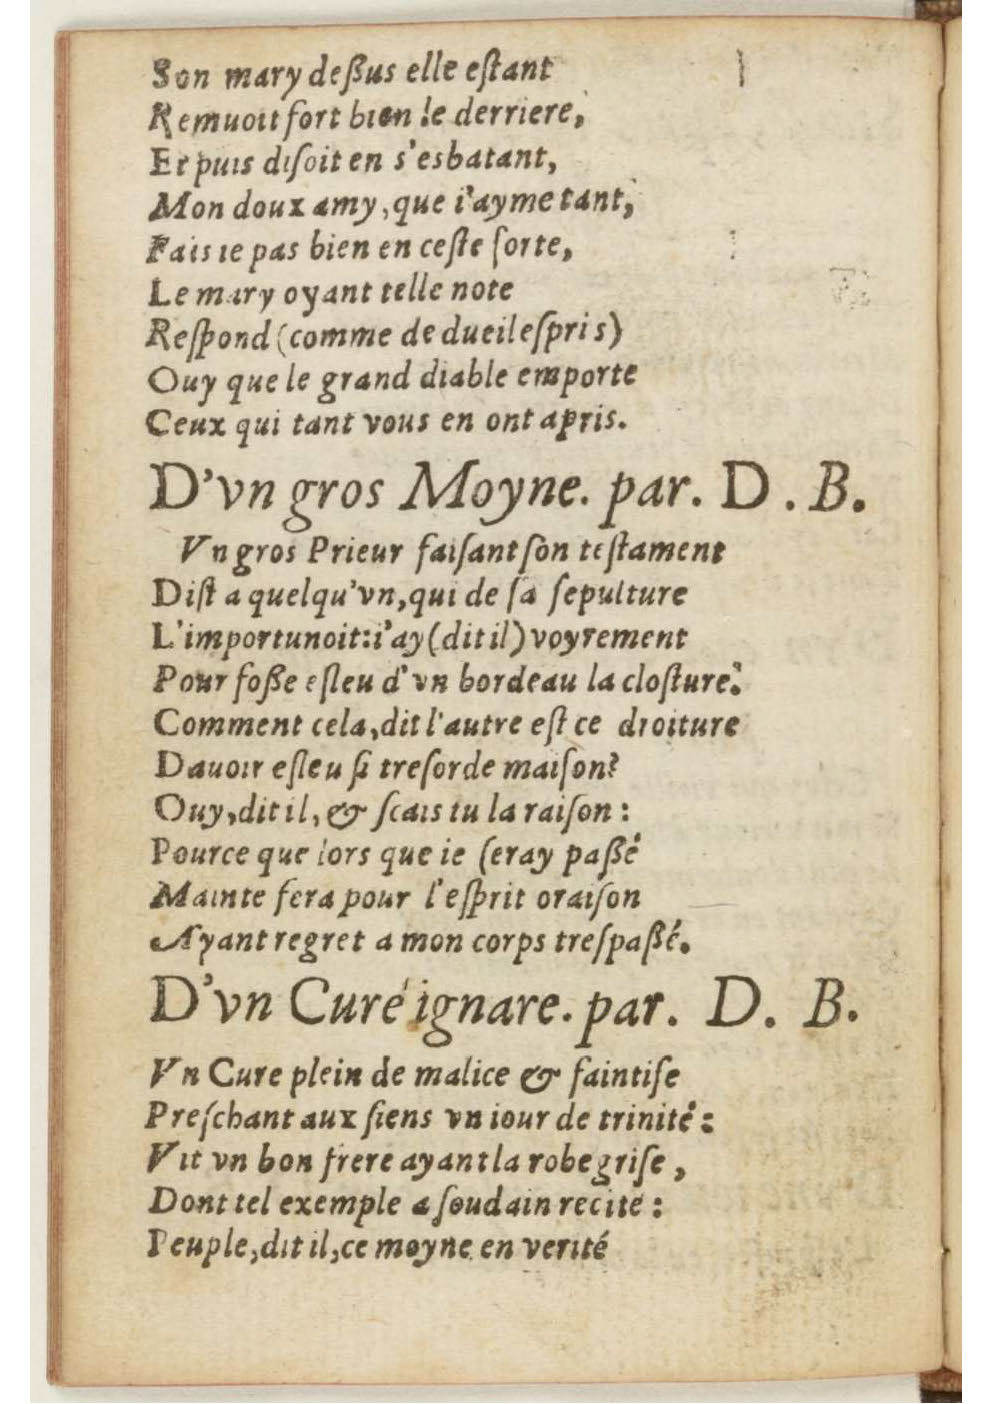 Son mary deßus elle eſtant
Remuoit fort bien le derriere,
Et puis diſoit en s'esbatant,
Mon doux amy, que i'ayme tant,
Fais ie pas bien en ceſte ſorte,
Le mary oyant telle note
Reſpond (comme de dueil eſpris)
Ouy que le grand diable emporte
Ceux qui tant vous en ont apris.
D'vn gros Moyne. par. D. B.
Vn gros Prieur faiſant ſon teſtament
Diſt a quelqu'vn, qui de ſa ſepulture
L'importunoit: i'ay (dit il) voyrement
Pour foße eſleu d'vn bordeau la cloſture.
Comment cela, dit l'autre eſt ce droiture
Dauoir eſleu ſi treſorde maiſon?
Ouy, dit il, & ſcais tu la raiſon:
Pource que lors que ie ſeray paßé
Mainte fera pour l'eſprit oraiſon
Ayant regret a mon corps treſpaßé.
D'vn Curé ignare. par. D. B.
Vn Cure plein de malice & faintiſe
Preſchant aux ſiens vn iour de trinité:
Vit vn bon frere ayant la robe griſe,
Dont tel exemple a ſoudain recité:
Peuple, dit il, ce moyne en verité